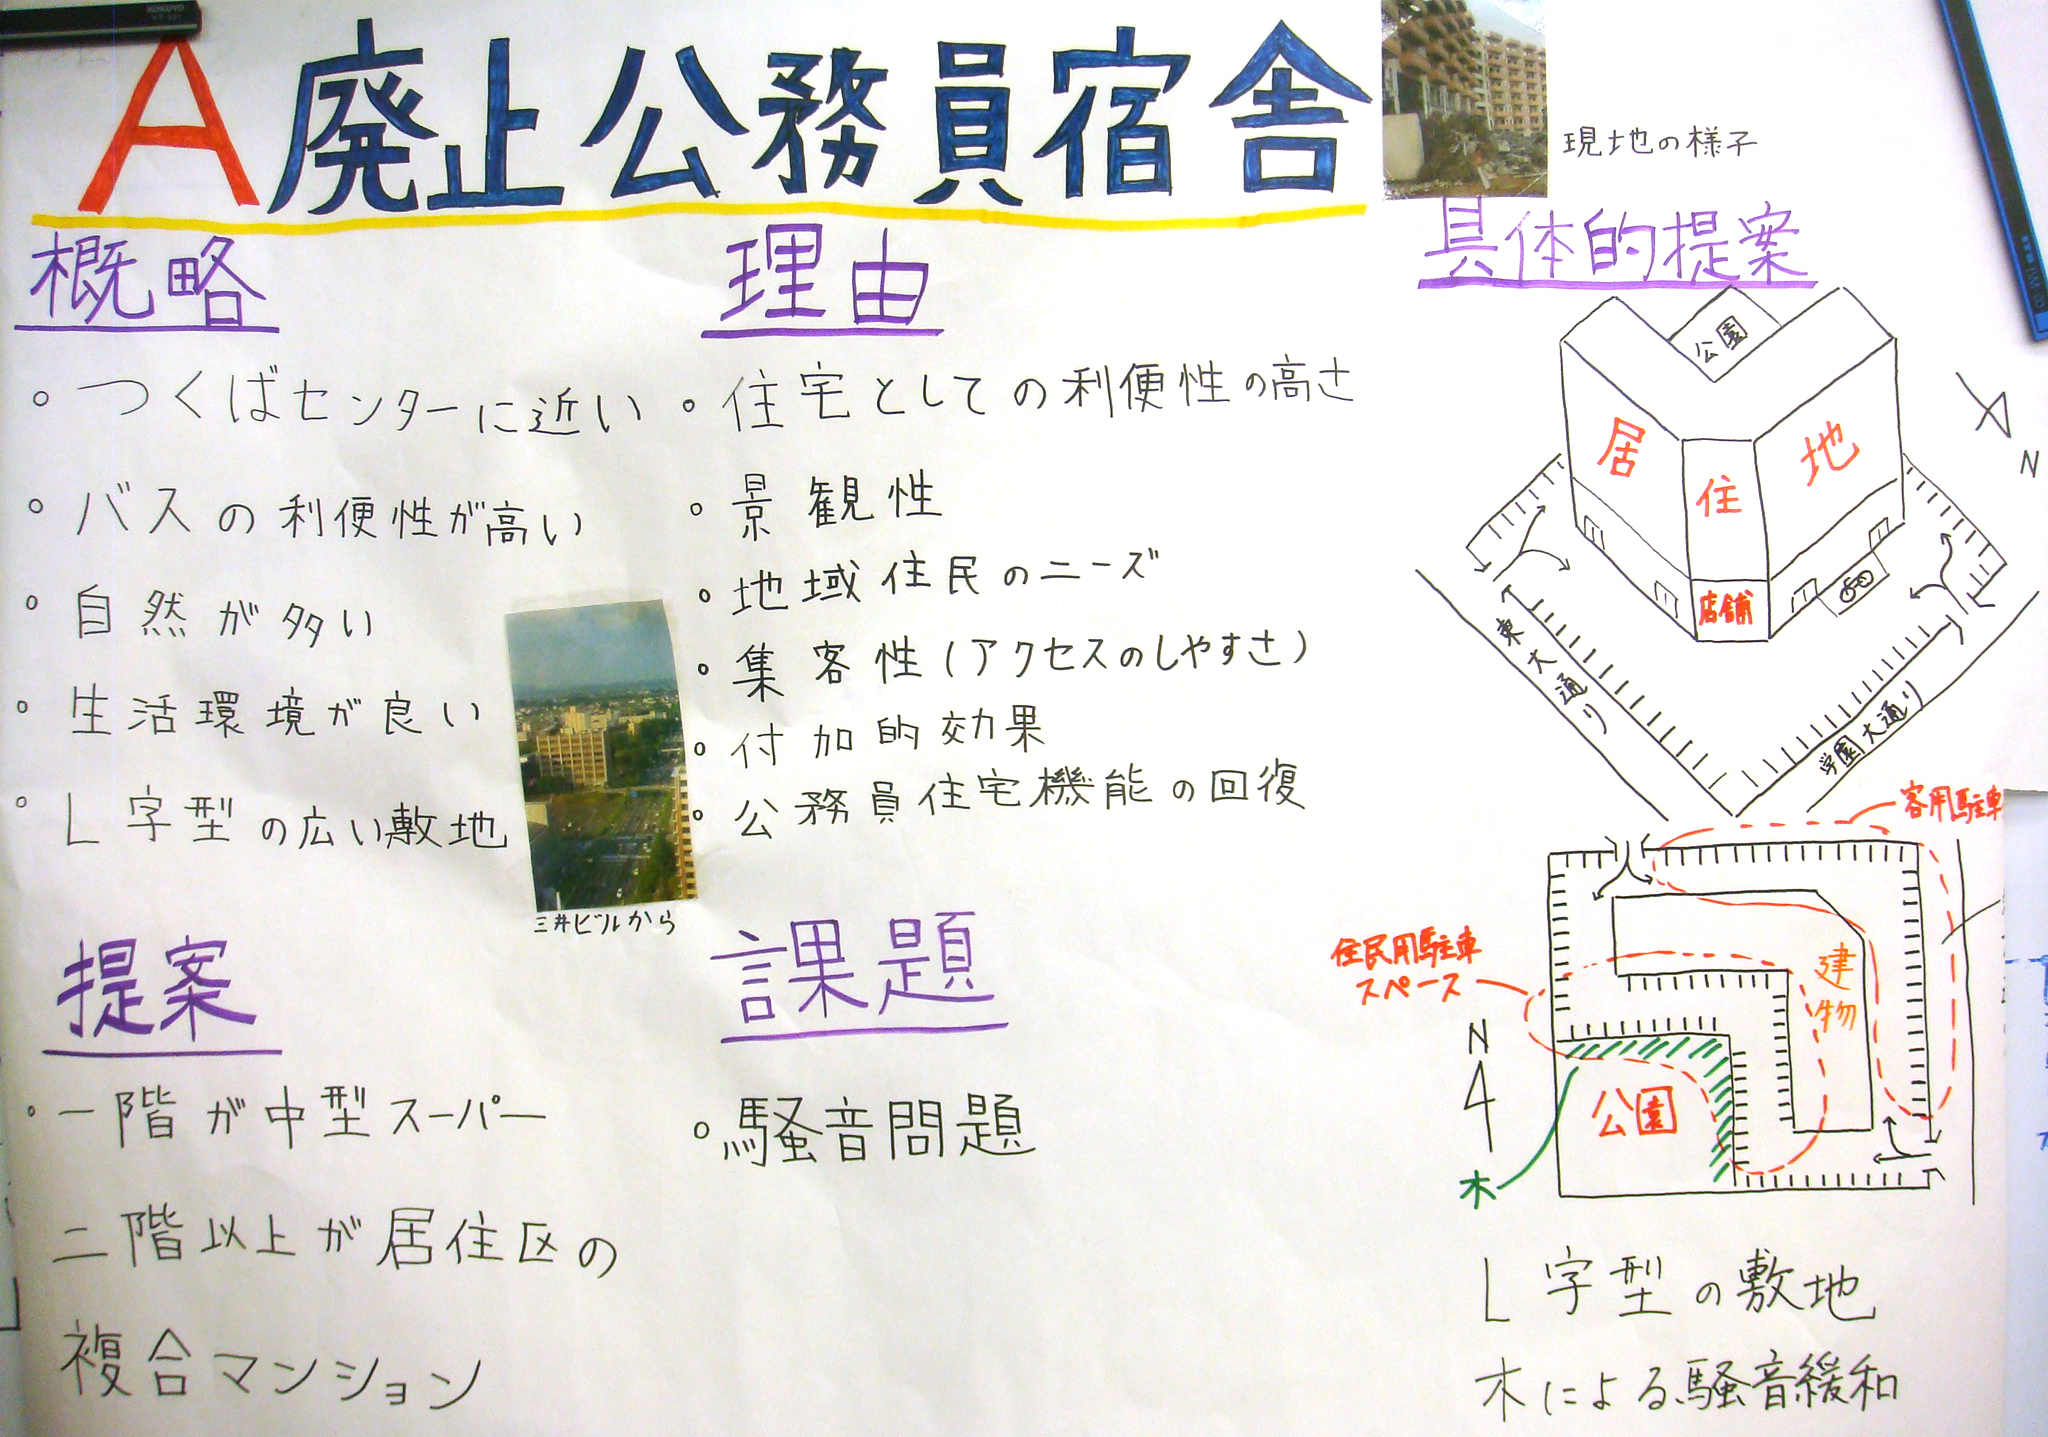 A 廃止公務員宿舎
現地の様子
概略
・つくばセンターに近い
・バスの利便性が高い
・自然が多い
・生活環境が良い
・L字型の広い敷地
三井ビルから
提案
・一階が中型スーパー
二階以上が居住区の
複合マンション
理由
・住宅としての利便性の高さ
・景観性
・地域住民のニーズ
・集客性(アクセスのしやすさ)
・付加的効果
・公務員住宅機能の回復
課題
・騒音問題
具体的提案
公園
居住地
店舗
N
東大通り
学園大通り
客用駐車
住民用駐車
スペース
建物
N
公園
木
L字型の敷地
木による騒音緩和